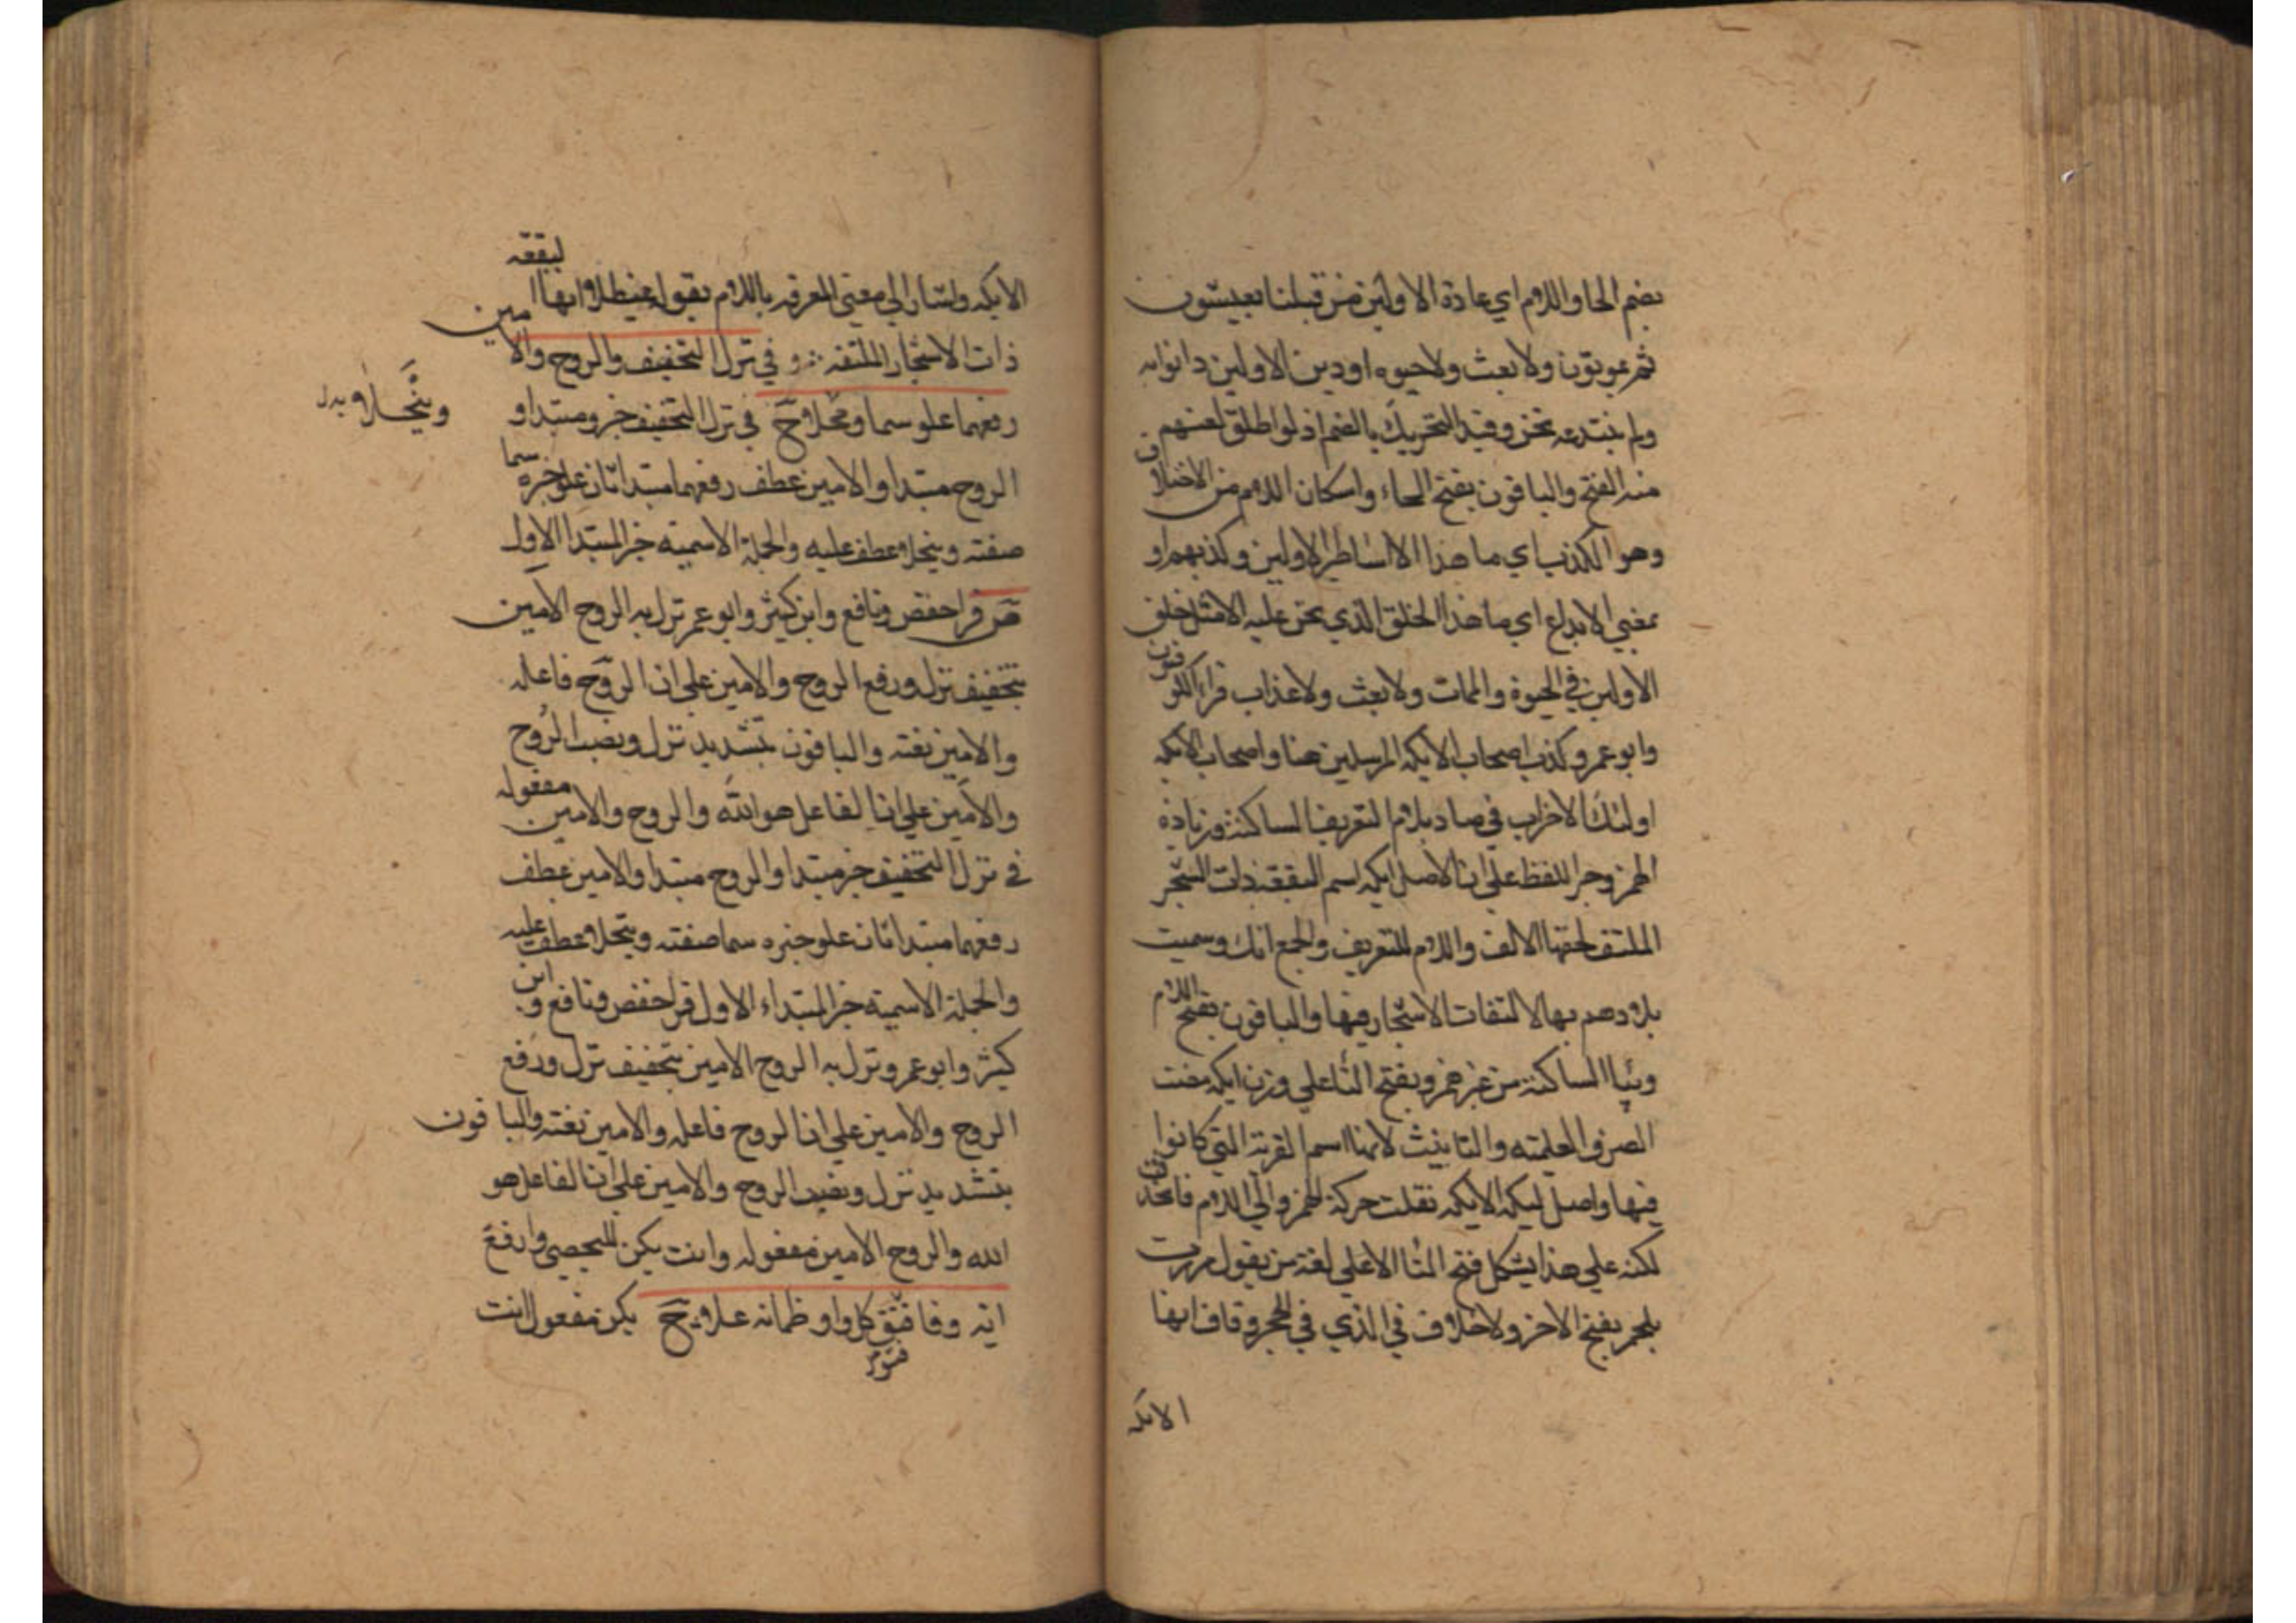 بضم الحا واللام اي عادة الاولين من قبلنا يعيشون
ثم يموتون ولا بعث ولا حيوة او دين الاولين دانوا به
ولم نبتدعه نحن وقيد التحريك بالضم اذ لو اطلق لفهم
منه الفتح والباقون بفتح الحاء واسكان اللام من الاختلاف
وهو الكذب اي ما هذا الا اساطير الاولين وكذبهم او
بمعني الابداع اي ما هذا الخلق الذي نحن عليه الا مثل خلق
الاولين في الحيوة والممات ولا بعث ولا عذاب قراء الكوفيون
وابو عمرو كذب اصحاب الايكه المرسلين هنا واصحاب الايكه
اولئك الاحزاب في صاد بلام التعريف الساكنة وزيادة
الهمز وجر اللفظ علي ان الاصل ايكه اسم البقعة ذات الشجر
الملتف لحقها الالف واللام للتعريف والجمع ايك وسميت
بلادهم بها لالتفات الاشجار فيها والباقون بفتح اللام
وبيا الساكنة من غير همز وبفتح التا علي وزن ايكه منعت
الصرف العلميه والتانيث لانها اسم القرية التي كانوا
فيها واصل ليكه الايكه نقلت حركة الهمز والي اللام فاتحدت
لكنه علي هذا يشكل فتح التا الا علي لغة من يقول مررت
بلحمر بفتح الاخر ولا خلاف في الذي في الحجر وقاف انها
الايكه
الايكه واشار الي معني المعرفه باللام بقوله غيطلا وانها البقعه
ذات الاشجار الملتفه وفي نزل التخفيف والروح والامين
رفعهما علو سما وتبجلا ح في نزل التخفيف خبر ومبتدا و
وتبجلا وبدل
الروح مبتدا والامين عطف رفعهما مبتدا ثان علو خبره سما
صفته وتبجلا عطف عليه والجملة الاسميه خبر المبتدا الاول
ص قرا حفص ونافع وابن كثير وابو عمر نزل به الروح الامين
بتخفيف نزل ورفع الروح والامين علي ان الروح فاعله
والامين نعته والباقون بتشديد نزل ونصب الروح
والامين علي ان الفاعل هو الله والروح والامين مفعوله
في نزل التخفيف خبر مبتدا والروح مبتدا والامين عطف
رفعهما مبتدا ثان علو خبره سما صفته وتبجلا عطف عليه
والجملة الاسمية خبر المبتداء الاول قرا حفص ونافع وابن
كثير وابو عمرو نزل به الروح الامين بتخفيف نزل ورفع
الروح والامين علي ان الروح فاعله والامين نعته والباقون
بتشديد نزل ونصب الروح والامين علي ان الفاعل هو
الله والروح الامين مفعوله وانث يكن لليحصبي وارفع
اية وفا فتوكل واو ظمانه علا ح يكن مفعول انث